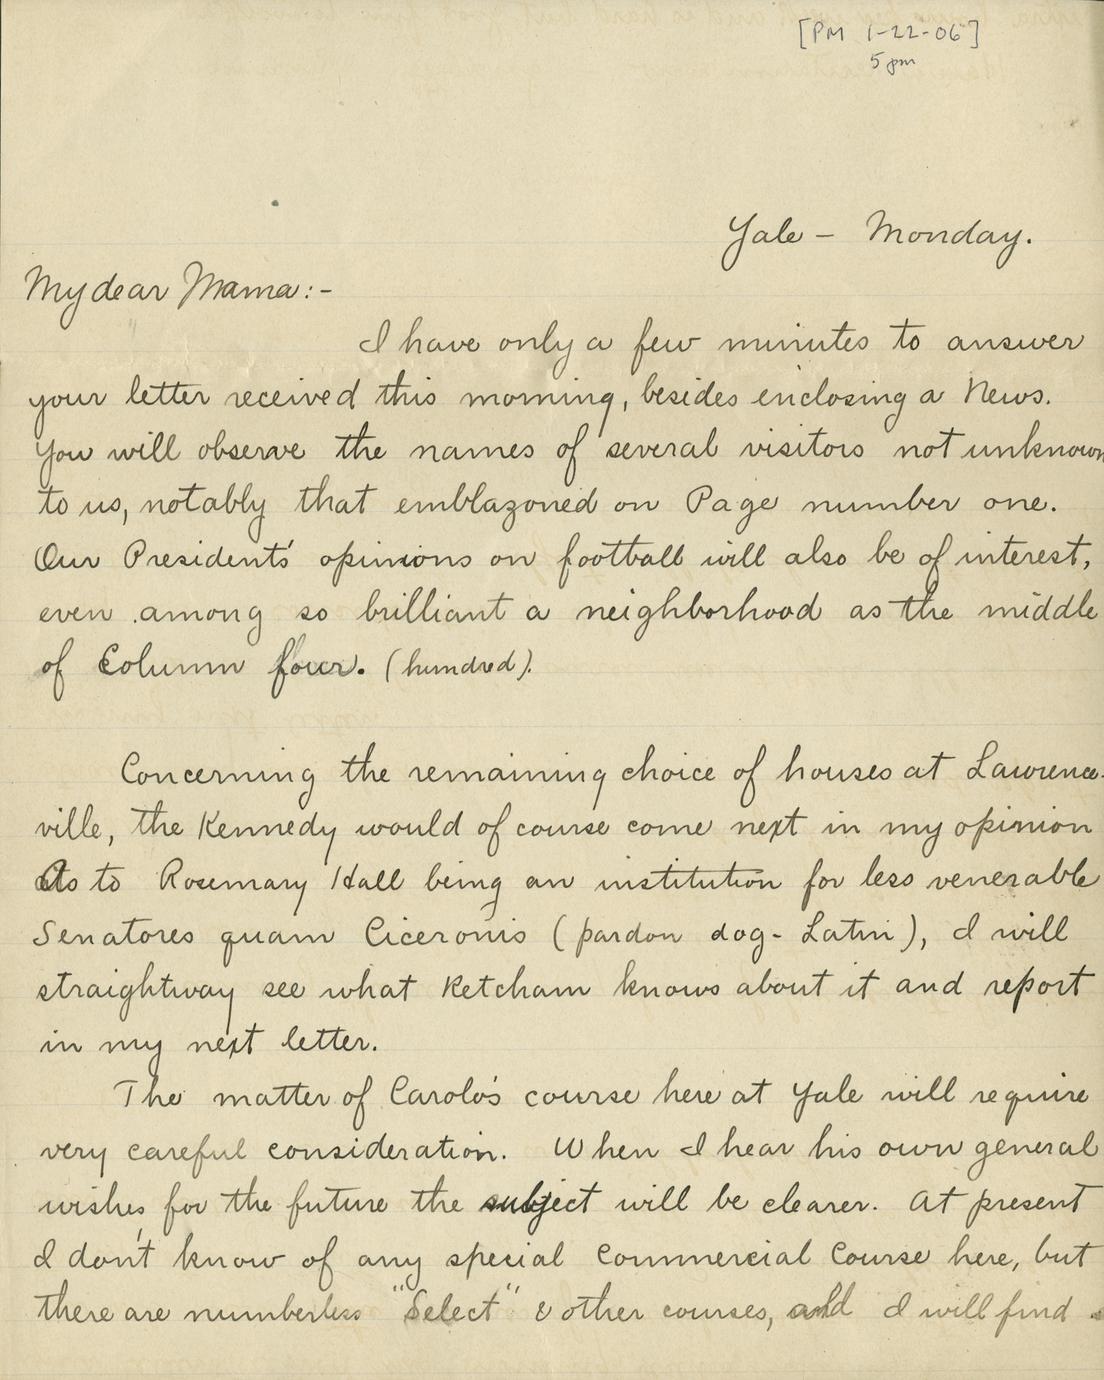 [PM 1-22-06]
5 pm
Yale – Monday.
My dear Mama:-
I have only a few minutes to answer
your letter received this morning, besides enclosing a News.
You will observe the names of several visitors not unknown
to us, notably that emblazoned on Page number one.
Our Presidents' opinions on football will also be of interest,
even among so brilliant a neighborhood as the middle
of Column four. (hundred).
Concerning the remaining choice of houses at Lawrence-
ville, the Kennedy would of course come next in my opinion
As to Rosemary Hall being an institution for less venerable
Senatores quam Ciceronis (pardon dog-Latin), I will
straightway see what Ketcham knows about it and report
in my next letter.
The matter of Carolo's course here at Yale will require
very careful consideration. When I hear his own general
wishes for the future the subject will be clearer. At present
I don't know of any special Commercial Course here, but
there are numberless "Select" & other courses, and I will find